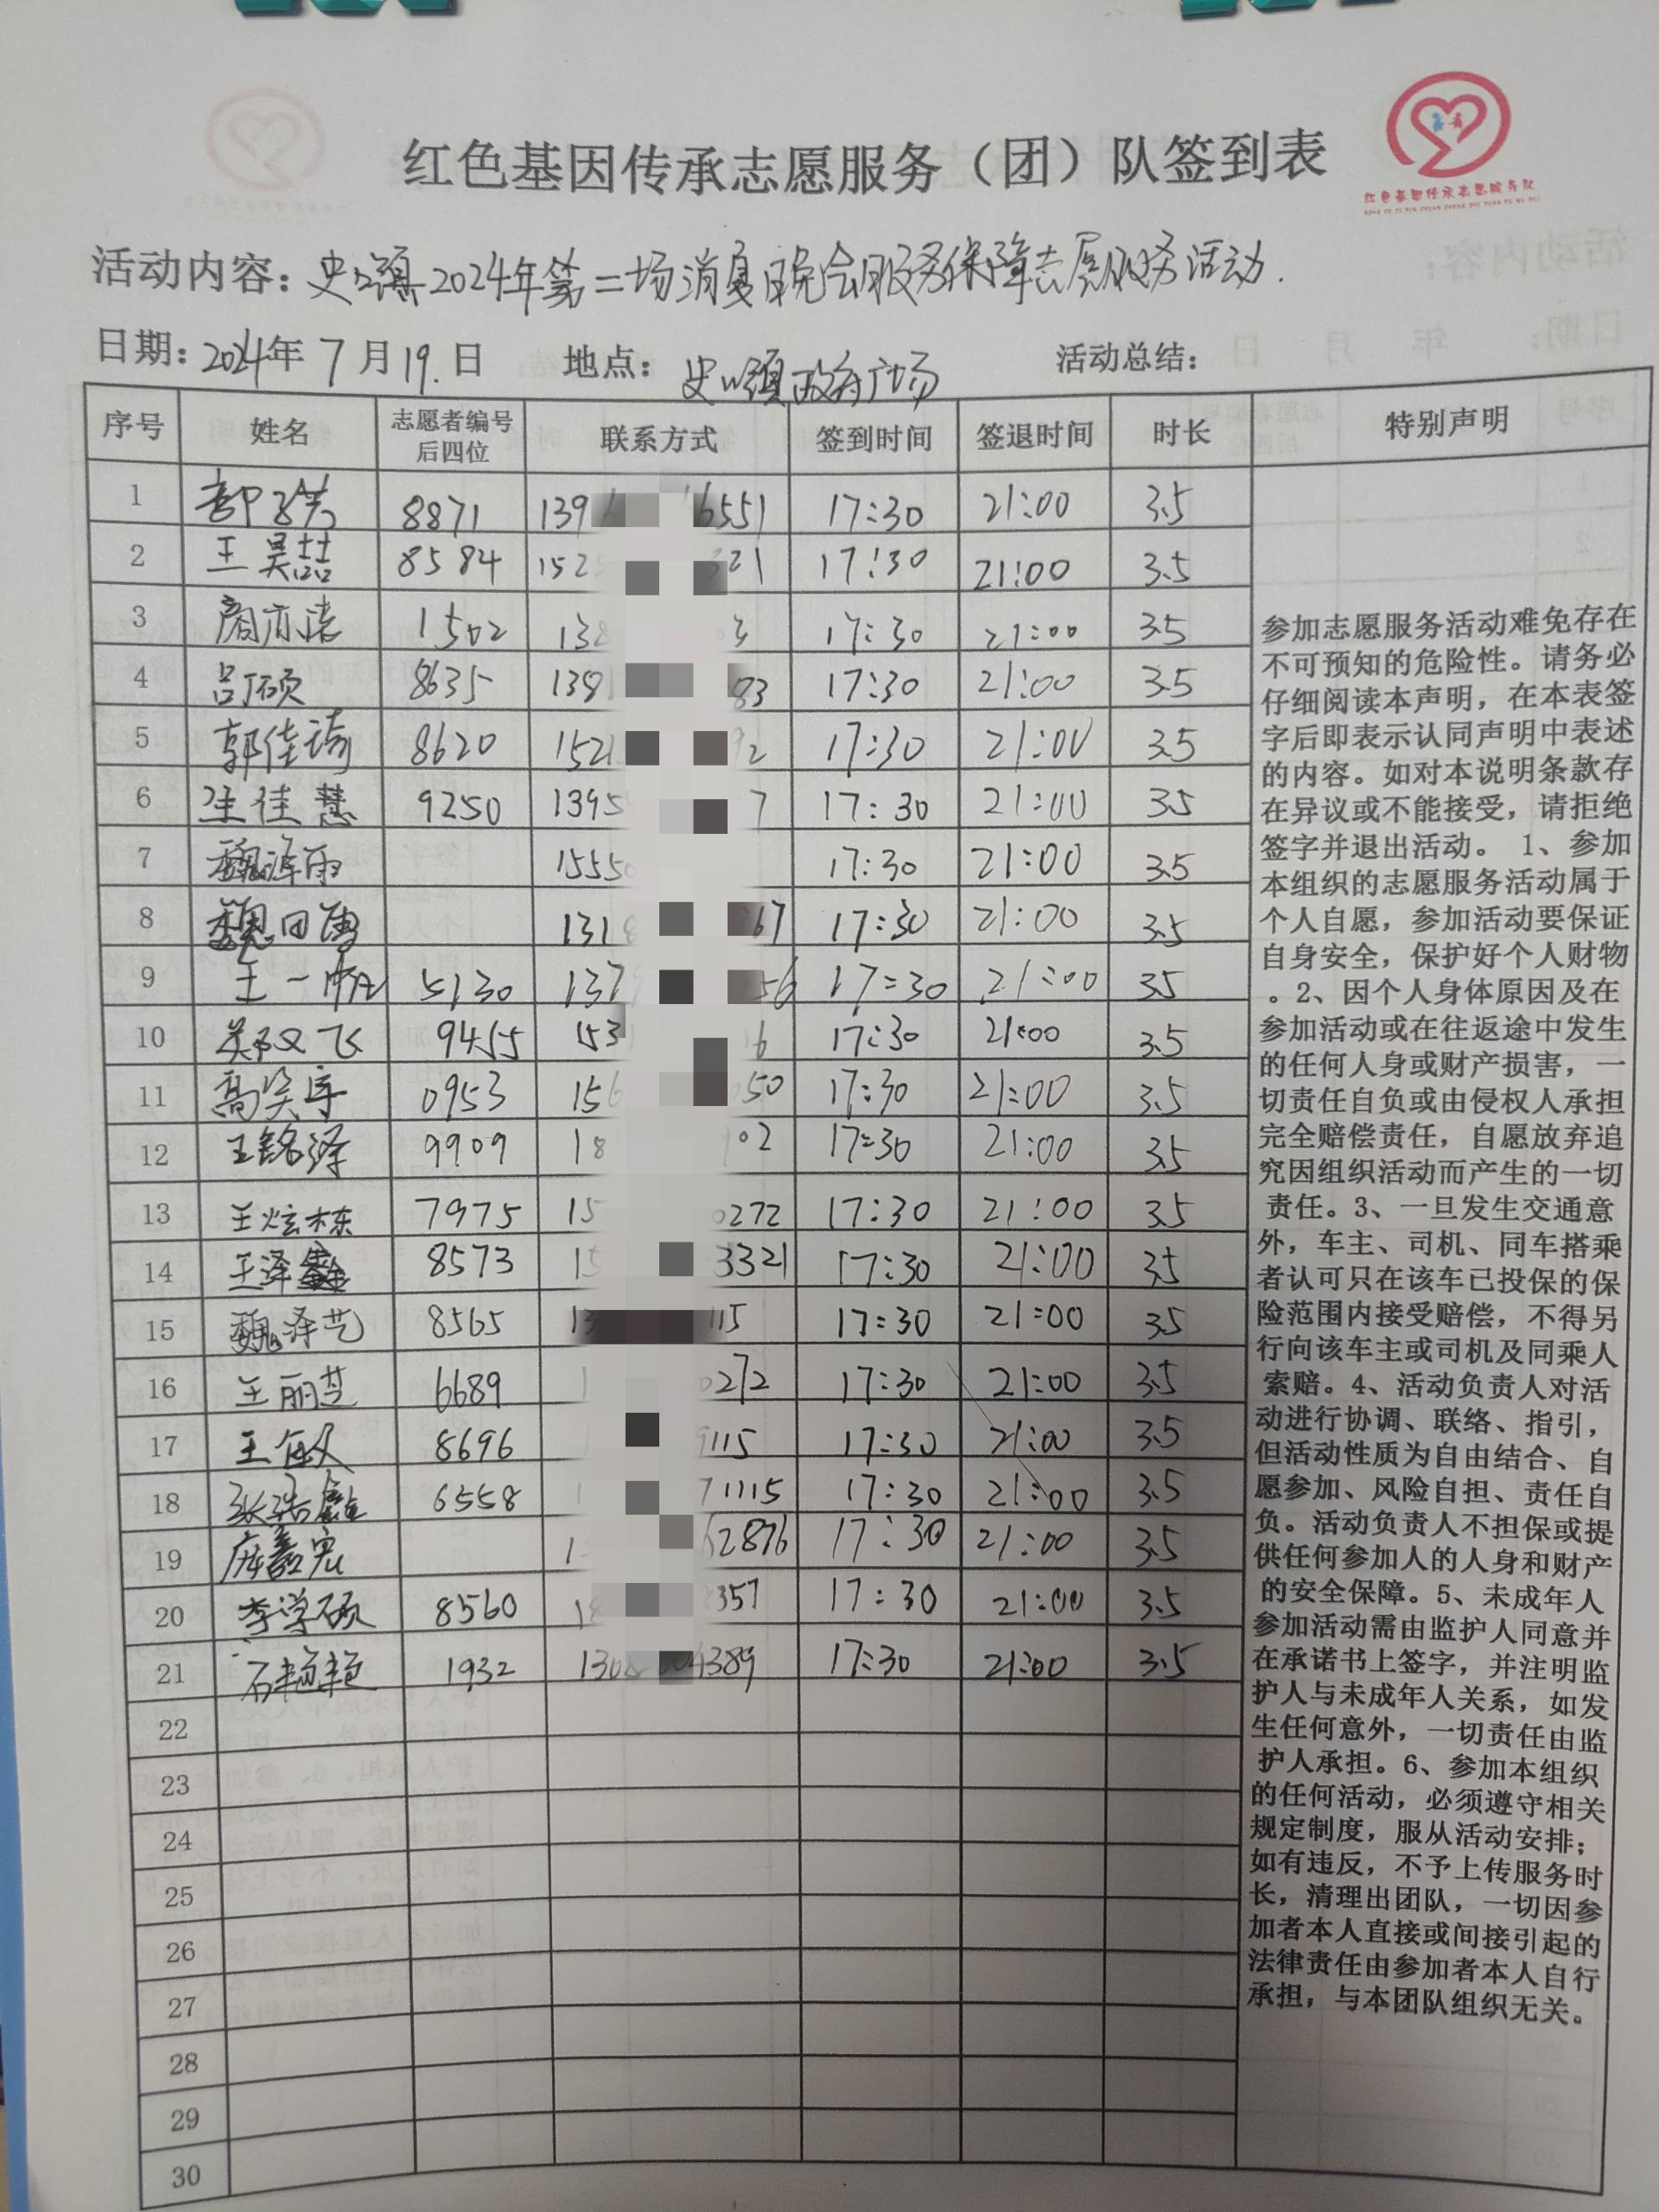 红色基因传承志愿服务（团）队签到表
红色基因传承志愿服务队
活动内容：史口镇2024年第二场消夏晚会服务保障志愿服务活动.
日期：2024年7月19.日 地点：史口镇政府广场 活动总结：
序号 姓名 志愿者编号后四位 联系方式 签到时间 签退时间 时长 特别声明
1 8871 139 6551 17:30 21:00 3.5
2 王昊喆 8584 152 321 17:30 21:00 3.5
3 1502 138 3 17:30 21:00 3.5
4 吕硕 8635 1381 83 17:30 21:00 3.5
5 郭佳 8620 1521 92 17:30 21:00 3.5
6 佳慧 9250 1395 7 17:30 21:00 3.5
7 魏 雨 1555 17:30 21:00 3.5
8 魏 131 67 17:30 21:00 3.5
9 王一帆 5130 137 56 17:30 21:00 3.5
10 飞 9455 153 6 17:30 21:00 3.5
11 高 0953 156 050 17:30 21:00 3.5
12 王铭泽 9909 18 02 17:30 21:00 3.5
13 王炫栋 7975 15 0272 17:30 21:00 3.5
14 王泽鑫 8573 15 3321 17:30 21:00 3.5
15 魏泽艺 8565 13 115 17:30 21:00 3.5
16 王丽芝 6689 1 0272 17:30 21:00 3.5
17 王 8696 9115 17:30 21:00 3.5
18 张浩鑫 6558 1 71115 17:30 21:00 3.5
19 1 62876 17:30 21:00 3.5
20 李学硕 8560 18 357 17:30 21:00 3.5
21 石艳艳 1932 130 4389 17:30 21:00 3.5
22
23
24
25
26
27
28
29
30
参加志愿服务活动难免存在
不可预知的危险性。请务必
仔细阅读本声明，在本表签
字后即表示认同声明中表述
的内容。如对本说明条款存
在异议或不能接受，请拒绝
签字并退出活动。 1、参加
本组织的志愿服务活动属于
个人自愿，参加活动要保证
自身安全，保护好个人财物
。2、因个人身体原因及在
参加活动或在往返途中发生
的任何人身或财产损害，一
切责任自负或由侵权人承担
完全赔偿责任，自愿放弃追
究因组织活动而产生的一切
责任。3、一旦发生交通意
外，车主、司机、同车搭乘
者认可只在该车已投保的保
险范围内接受赔偿，不得另
行向该车主或司机及同乘人
索赔。4、活动负责人对活
动进行协调、联络、指引，
但活动性质为自由结合、自
愿参加、风险自担、责任自
负。活动负责人不担保或提
供任何参加人的人身和财产
的安全保障。5、未成年人
参加活动需由监护人同意并
在承诺书上签字，并注明监
护人与未成年人关系，如发
生任何意外，一切责任由监
护人承担。6、参加本组织
的任何活动，必须遵守相关
规定制度，服从活动安排；
如有违反，不予上传服务时
长，清理出团队，一切因参
加者本人直接或间接引起的
法律责任由参加者本人自行
承担，与本团队组织无关。